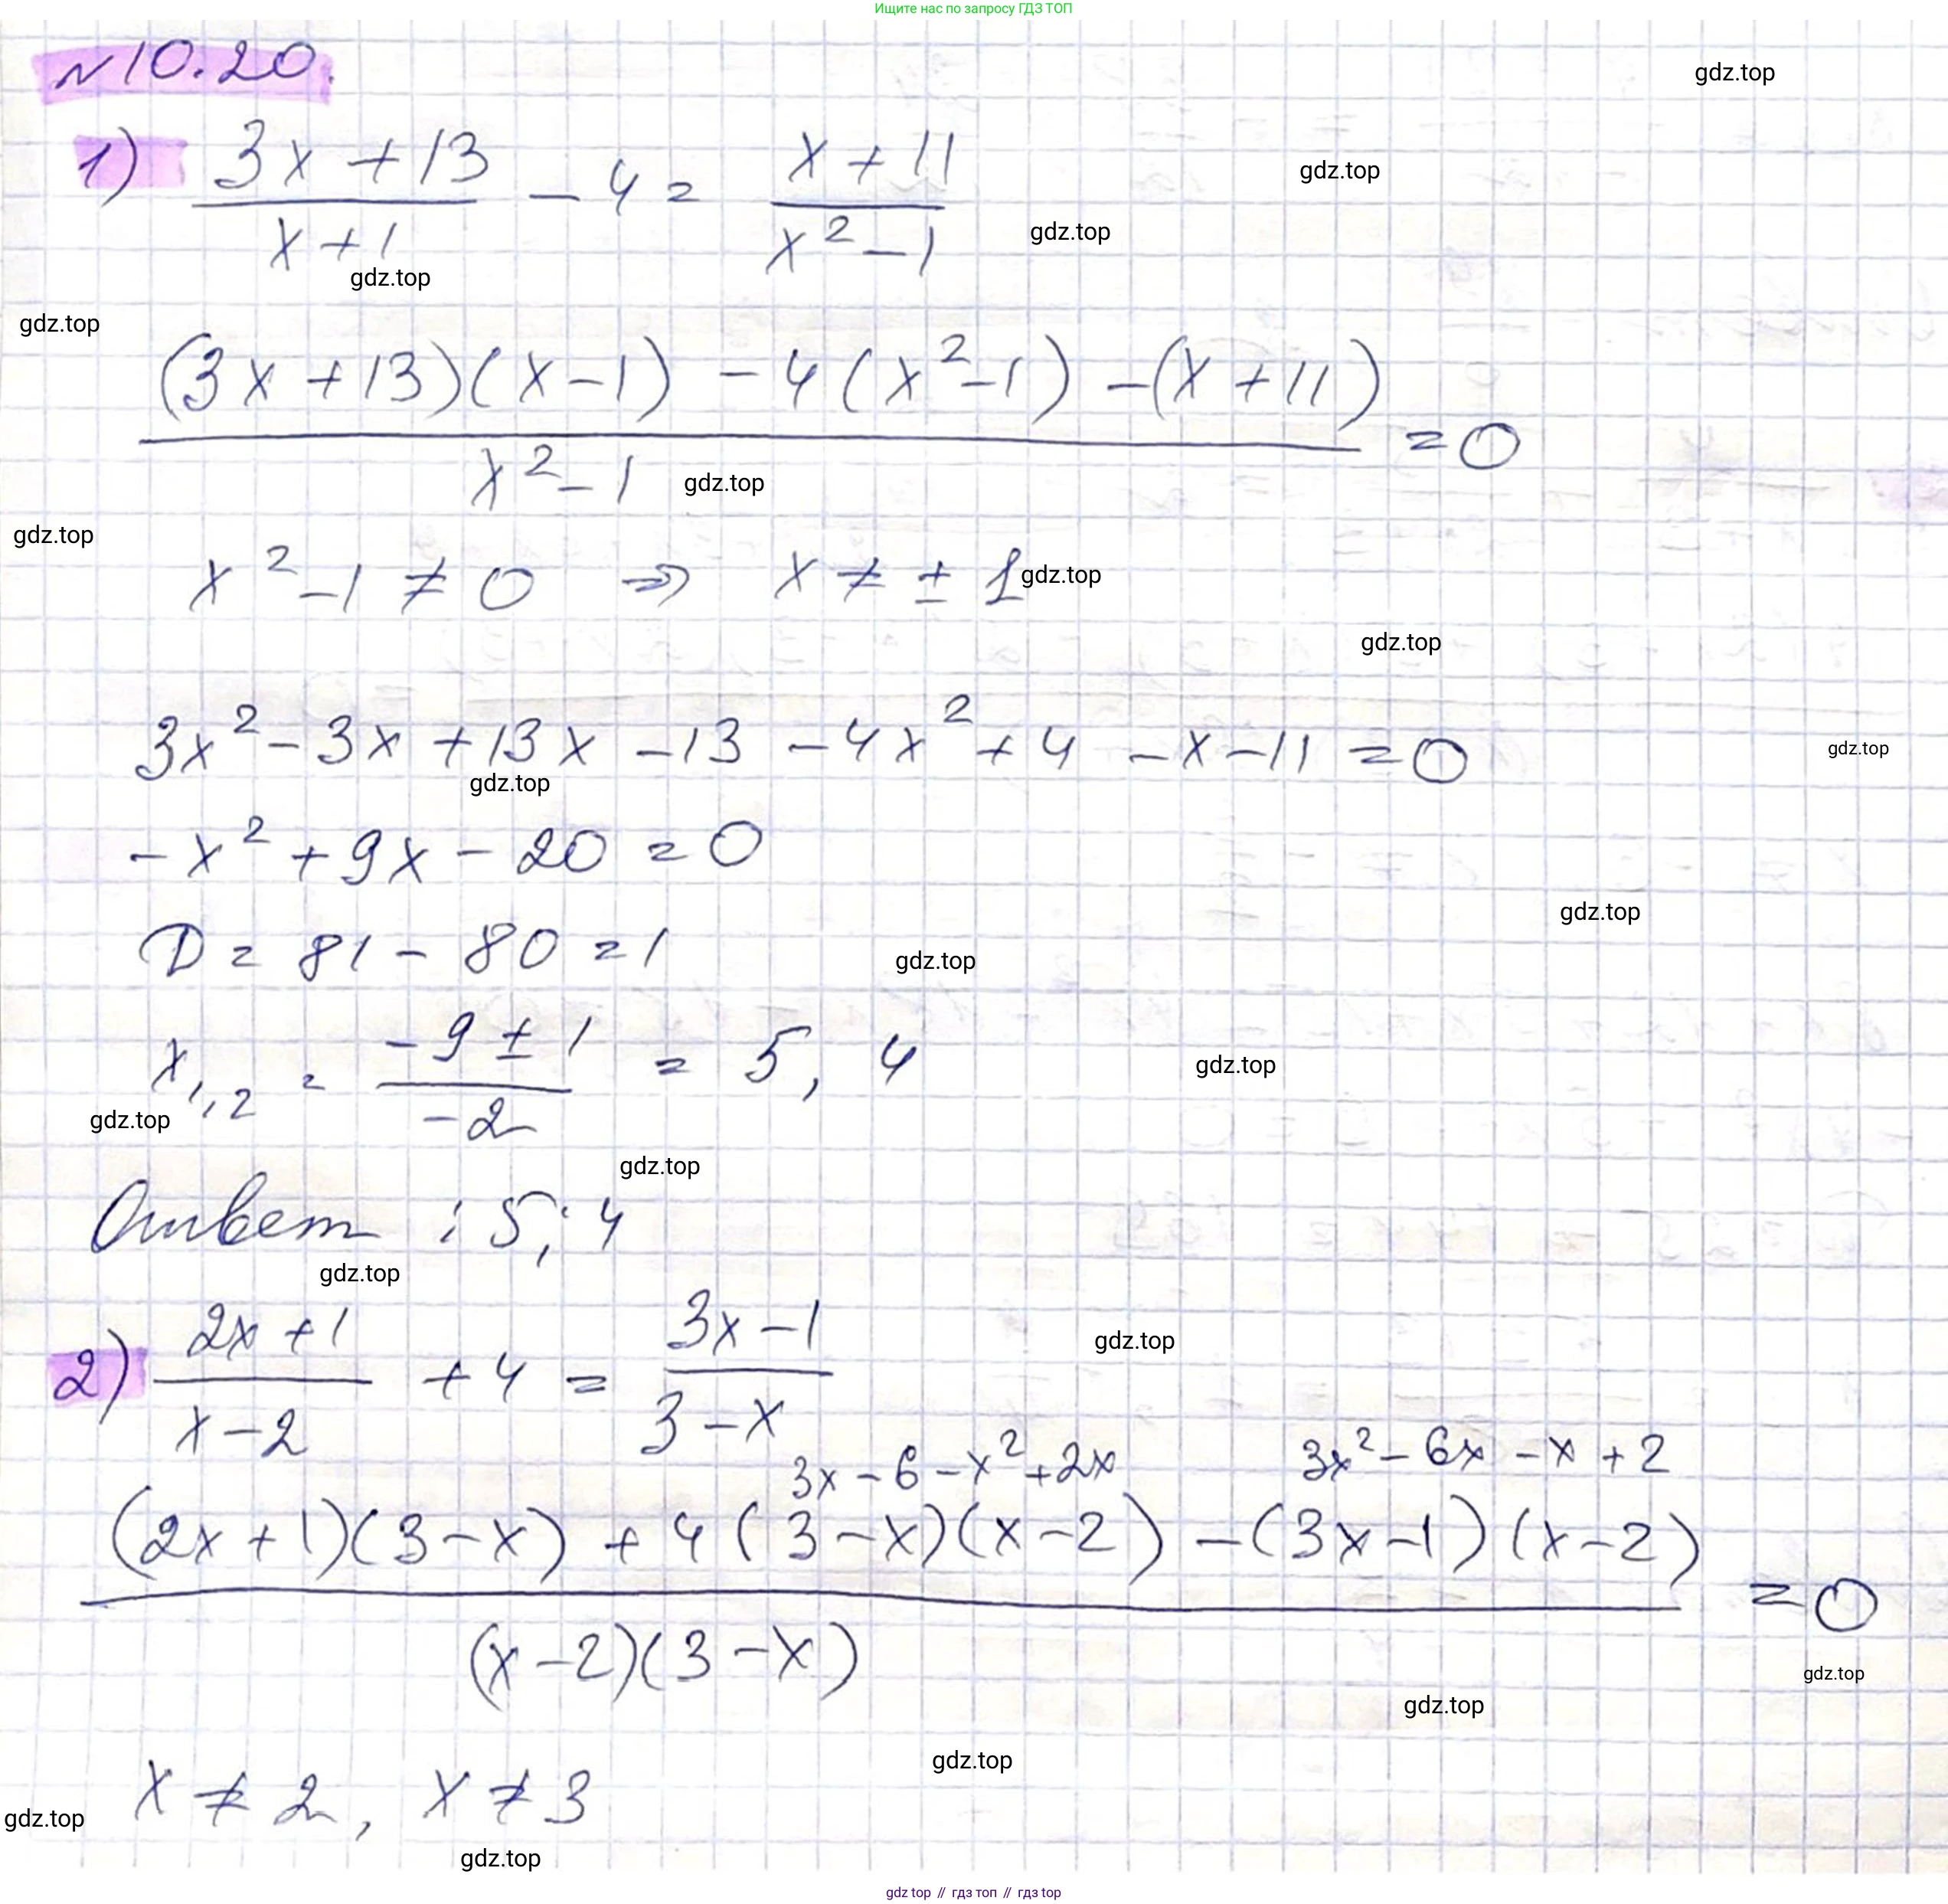 Ищите нас по запросу ГДЗ ТОП
№10.20.
gdz.top
1) (3x+13)/(x+1) - 4 = (x+11)/(x²-1)
gdz.top
gdz.top
gdz.top
gdz.top
((3x+13)(x-1) - 4(x²-1) - (x+11))/(x²-1) = 0
gdz.top
gdz.top
x²-1 ≠ 0 ⇒ x ≠ ± 1
gdz.top
gdz.top
3x² - 3x + 13x - 13 - 4x² + 4 - x - 11 = 0
gdz.top
gdz.top
-x² + 9x - 20 = 0
gdz.top
D = 81 - 80 = 1
gdz.top
x₁,₂ = (-9 ± 1)/(-2) = 5, 4
gdz.top
gdz.top
gdz.top
Ответ : 5; 4
gdz.top
2) (2x+1)/(x-2) + 4 = (3x-1)/(3-x)
gdz.top
3x - 6 - x² + 2x 3x² - 6x - x + 2
((2x+1)(3-x) + 4(3-x)(x-2) - (3x-1)(x-2))/((x-2)(3-x)) = 0
gdz.top
gdz.top
gdz.top
x ≠ 2, x ≠ 3
gdz.top
gdz.top
gdz top // гдз топ // gdz top